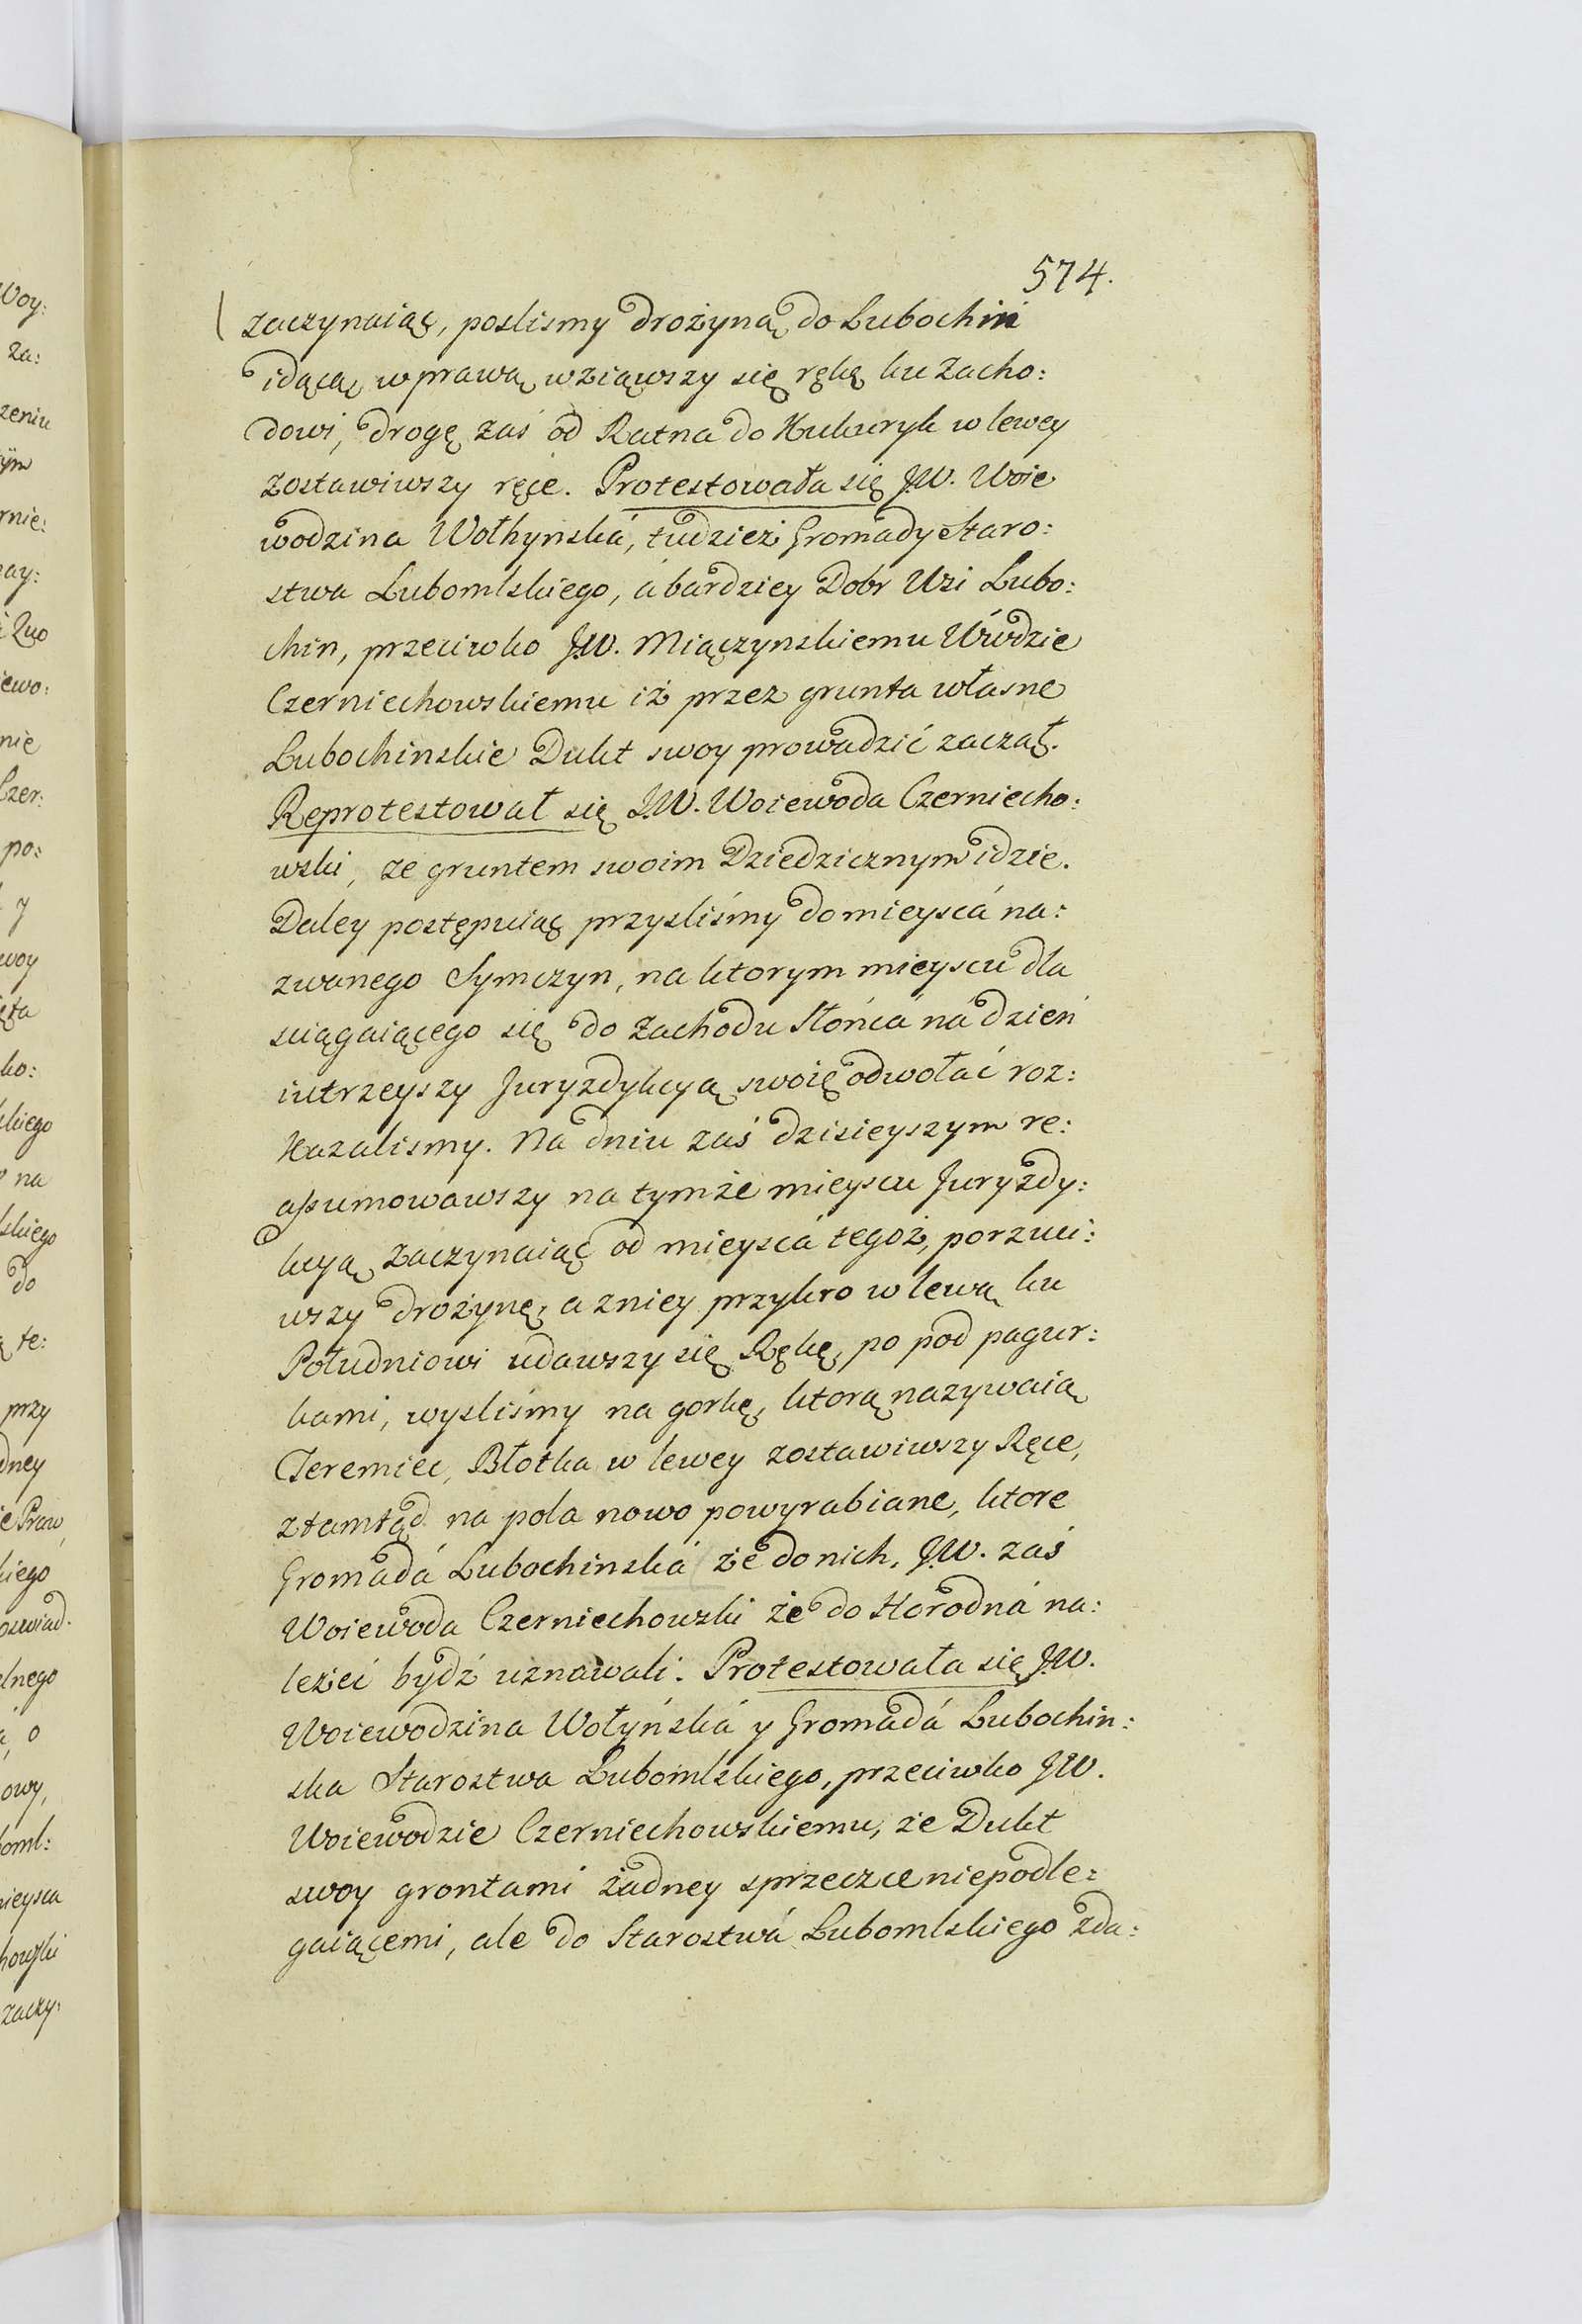 574.
zaczynaiąc, poslismy drożyną do Lubochin
idącą, w prawą wziąwszy się rękę ku zacho:
dowi, drogę zaś od Ratna do Kukuryk w lewey
zostawiwszy ręce. Protestowała się J.W. Woie
wodzina Wołhynská, tudzież Gromady Staro:
stwa Lubomlskiego, á bardziey Dobr Wsi Lubo:
chin, przeciwko J.W. Miączynskiemu Wwdzie
Czerniechowskiemu iż przez grunta własne
Lubochinskie Dukt swoy prowadzić zaczął.
Reprotestował się J.W. Woiewoda Czerniecho:
wski, ze gruntem swoim Dziedzicznym idzie.
Daley postępuiąc przysliśmy do mieyscá na:
zwanego Symczyn, na ktorym mieyscu dla
sciągaiącego się do zachodu Słońcá ná dzień
iutrzeyszy Juryzdykcyą swoię odwołać roz:
kazalismy. Na dniu zaś dzisieyszym re:
assumowawszy na tymże mieyscu Juryzdy:
kcyą, zaczynaiąc od mieyscá tegoż, porzuci:
wszy drożynę, a zniey przykro w lewą ku
Południowi udawszy się Rękę, po pod pagur:
kami, wysliśmy na gorkę, ktorą nazywaią
Jeremiec, Błotka w lewey zostawiwszy Ręce,
ztamtąd na pola nowo powyrabiane, ktore
Gromadá Lubochinská że do nich, J.W. zaś
Woiewoda Czerniechowski że do Horodná na:
leżeć bydź uznawali. Protestowała się J.W.
Woiewodzina Wołyńská y Gromadá Lubochin:
ska Starostwa Lubomlskiego, przeciwko J.W.
Woiewodzie Czerniechowskiemu, że Dukt
swoy grontami żadney sprzeczce niepodle:
gaiącemi, ale do Starostwá Lubomlskiego zda: